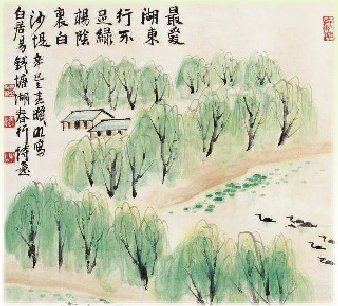 最愛
湖東
行不
足綠
楊陰
裏白
沙堤辛巳春寫
白居易錢塘湖春行詩意